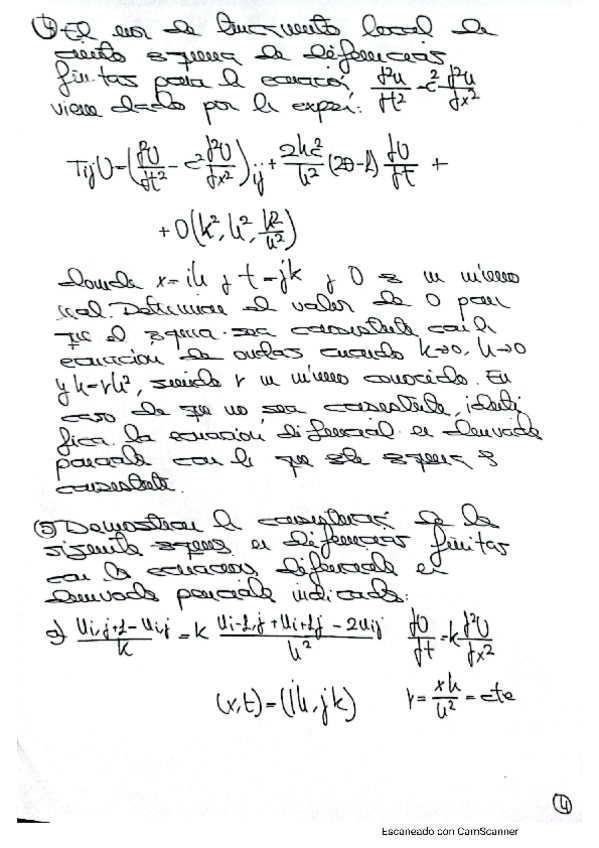 ④ El error de truncamiento local de
cierto esquema de diferencias
finitas para la ecuación ∂²u/∂t² - c² ∂²u/∂x²
viene dado por la expr:
Tij U = (∂²U/∂t² - c² ∂²U/∂x²)ij + 2kc²/h² (2θ-1) ∂U/∂t +
+ O(k², h², k²/h²)
donde x=ih y t=jk y θ es un número
real. Determinar el valor de θ para
que el esquema sea consistente con la
ecuación de ondas cuando k→0, h→0
y k=rh², siendo r un número conocido. En
caso de que no sea consistente, identi
fica la ecuación diferencial en derivadas
parciales con la que este esquema es
consistente.
⑤ Demostrar la consistencia de los
siguiente esquemas en diferencias finitas
con la ecuaciones diferenciales en
derivadas parciales indicadas:
a) (ui,j+1 - uij)/k = K (ui-1,j + ui+1,j - 2uij)/h² ∂U/∂t = K ∂²U/∂x²
(x,t) = (ih, jk) r = xk/h² = cte
④
Escaneado con CamScanner